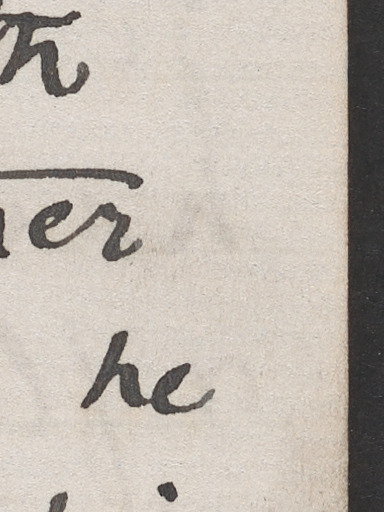 th
er
he